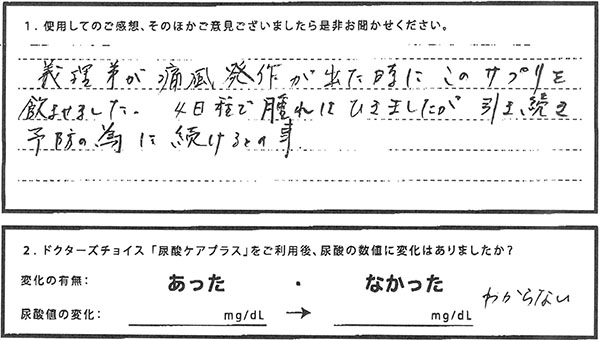 1. 使用してのご感想、そのほかご意見ございましたら是非お聞かせください。
義理弟が痛風発作が出た時にこのサプリを
飲ませました。4日程で腫れはひきましたが引き続き
予防の為に続けるとの事
2. ドクターズチョイス「尿酸ケアプラス」をご利用後、尿酸の数値に変化はありましたか?
変化の有無: あった ・ なかった わからない
尿酸値の変化: mg/dL → mg/dL